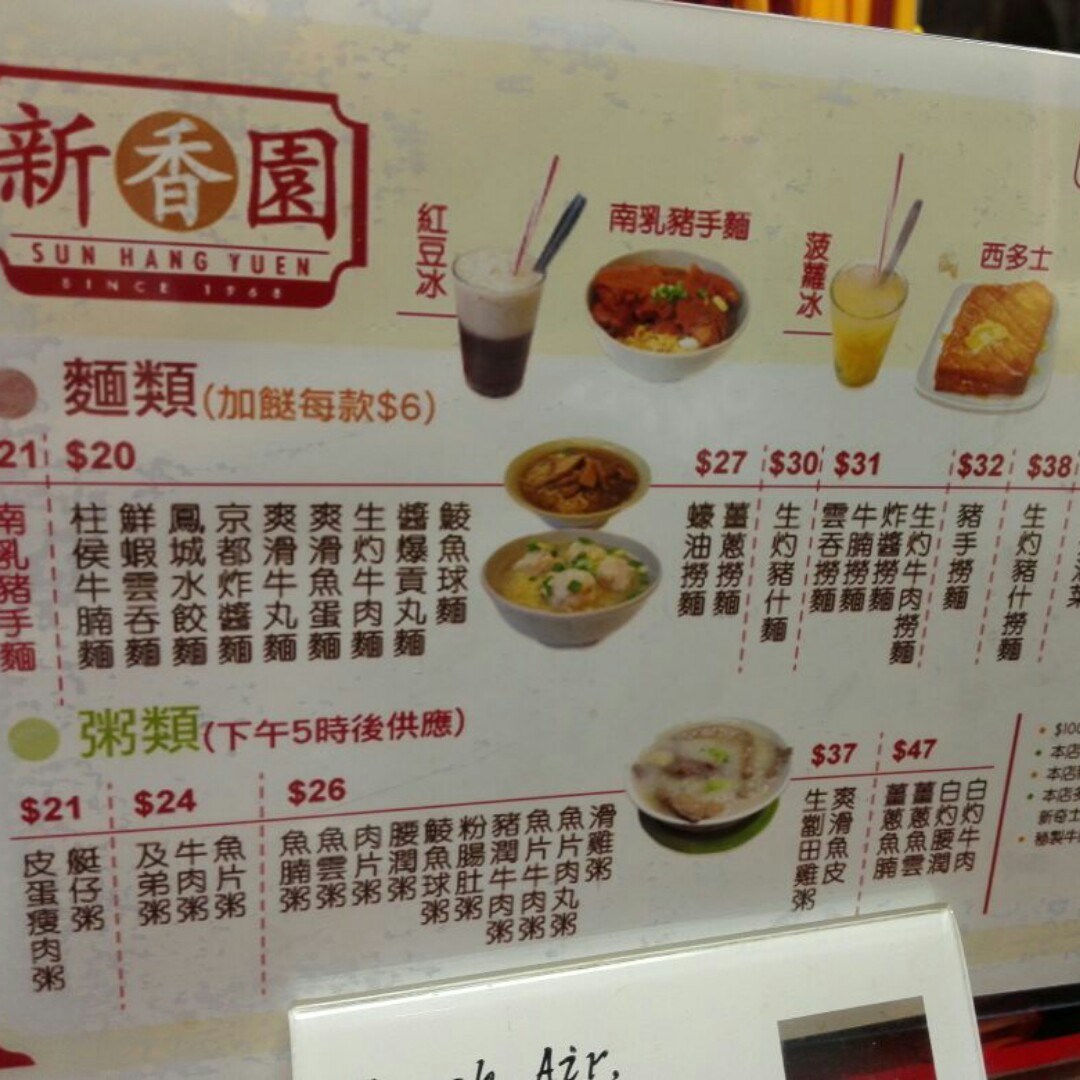 新香園
SUN HANG YUEN
SINCE 1968
紅豆冰
南乳豬手麵
菠蘿冰
西多士
麵類(加餸每款$6)
21
南乳豬手麵
$20
柱侯牛腩麵
鮮蝦雲吞麵
鳳城水餃麵
京都炸醬麵
爽滑牛丸麵
爽滑魚蛋麵
生灼牛肉麵
醬爆貢丸麵
鯪魚球麵
$27
蠔油撈麵
薑蔥撈麵
$30
生灼豬什麵
$31
雲吞撈麵
牛腩撈麵
炸醬撈麵
生灼牛肉撈麵
$32
豬手撈麵
$38
生灼豬什撈麵
粥類(下午5時後供應)
$21
皮蛋瘦肉粥
艇仔粥
$24
及弟粥
牛肉粥
魚片粥
$26
魚腩粥
魚雲粥
肉片粥
腰潤粥
鯪魚球粥
粉腸肚粥
豬潤牛肉粥
魚片牛肉粥
魚片肉丸粥
滑雞粥
$37
生劏田雞粥
爽滑魚皮
$47
薑蔥魚腩
薑蔥魚雲
白灼腰潤
白灼牛肉
$100
本店
本店
本店
新奇士
秘製牛
Air,